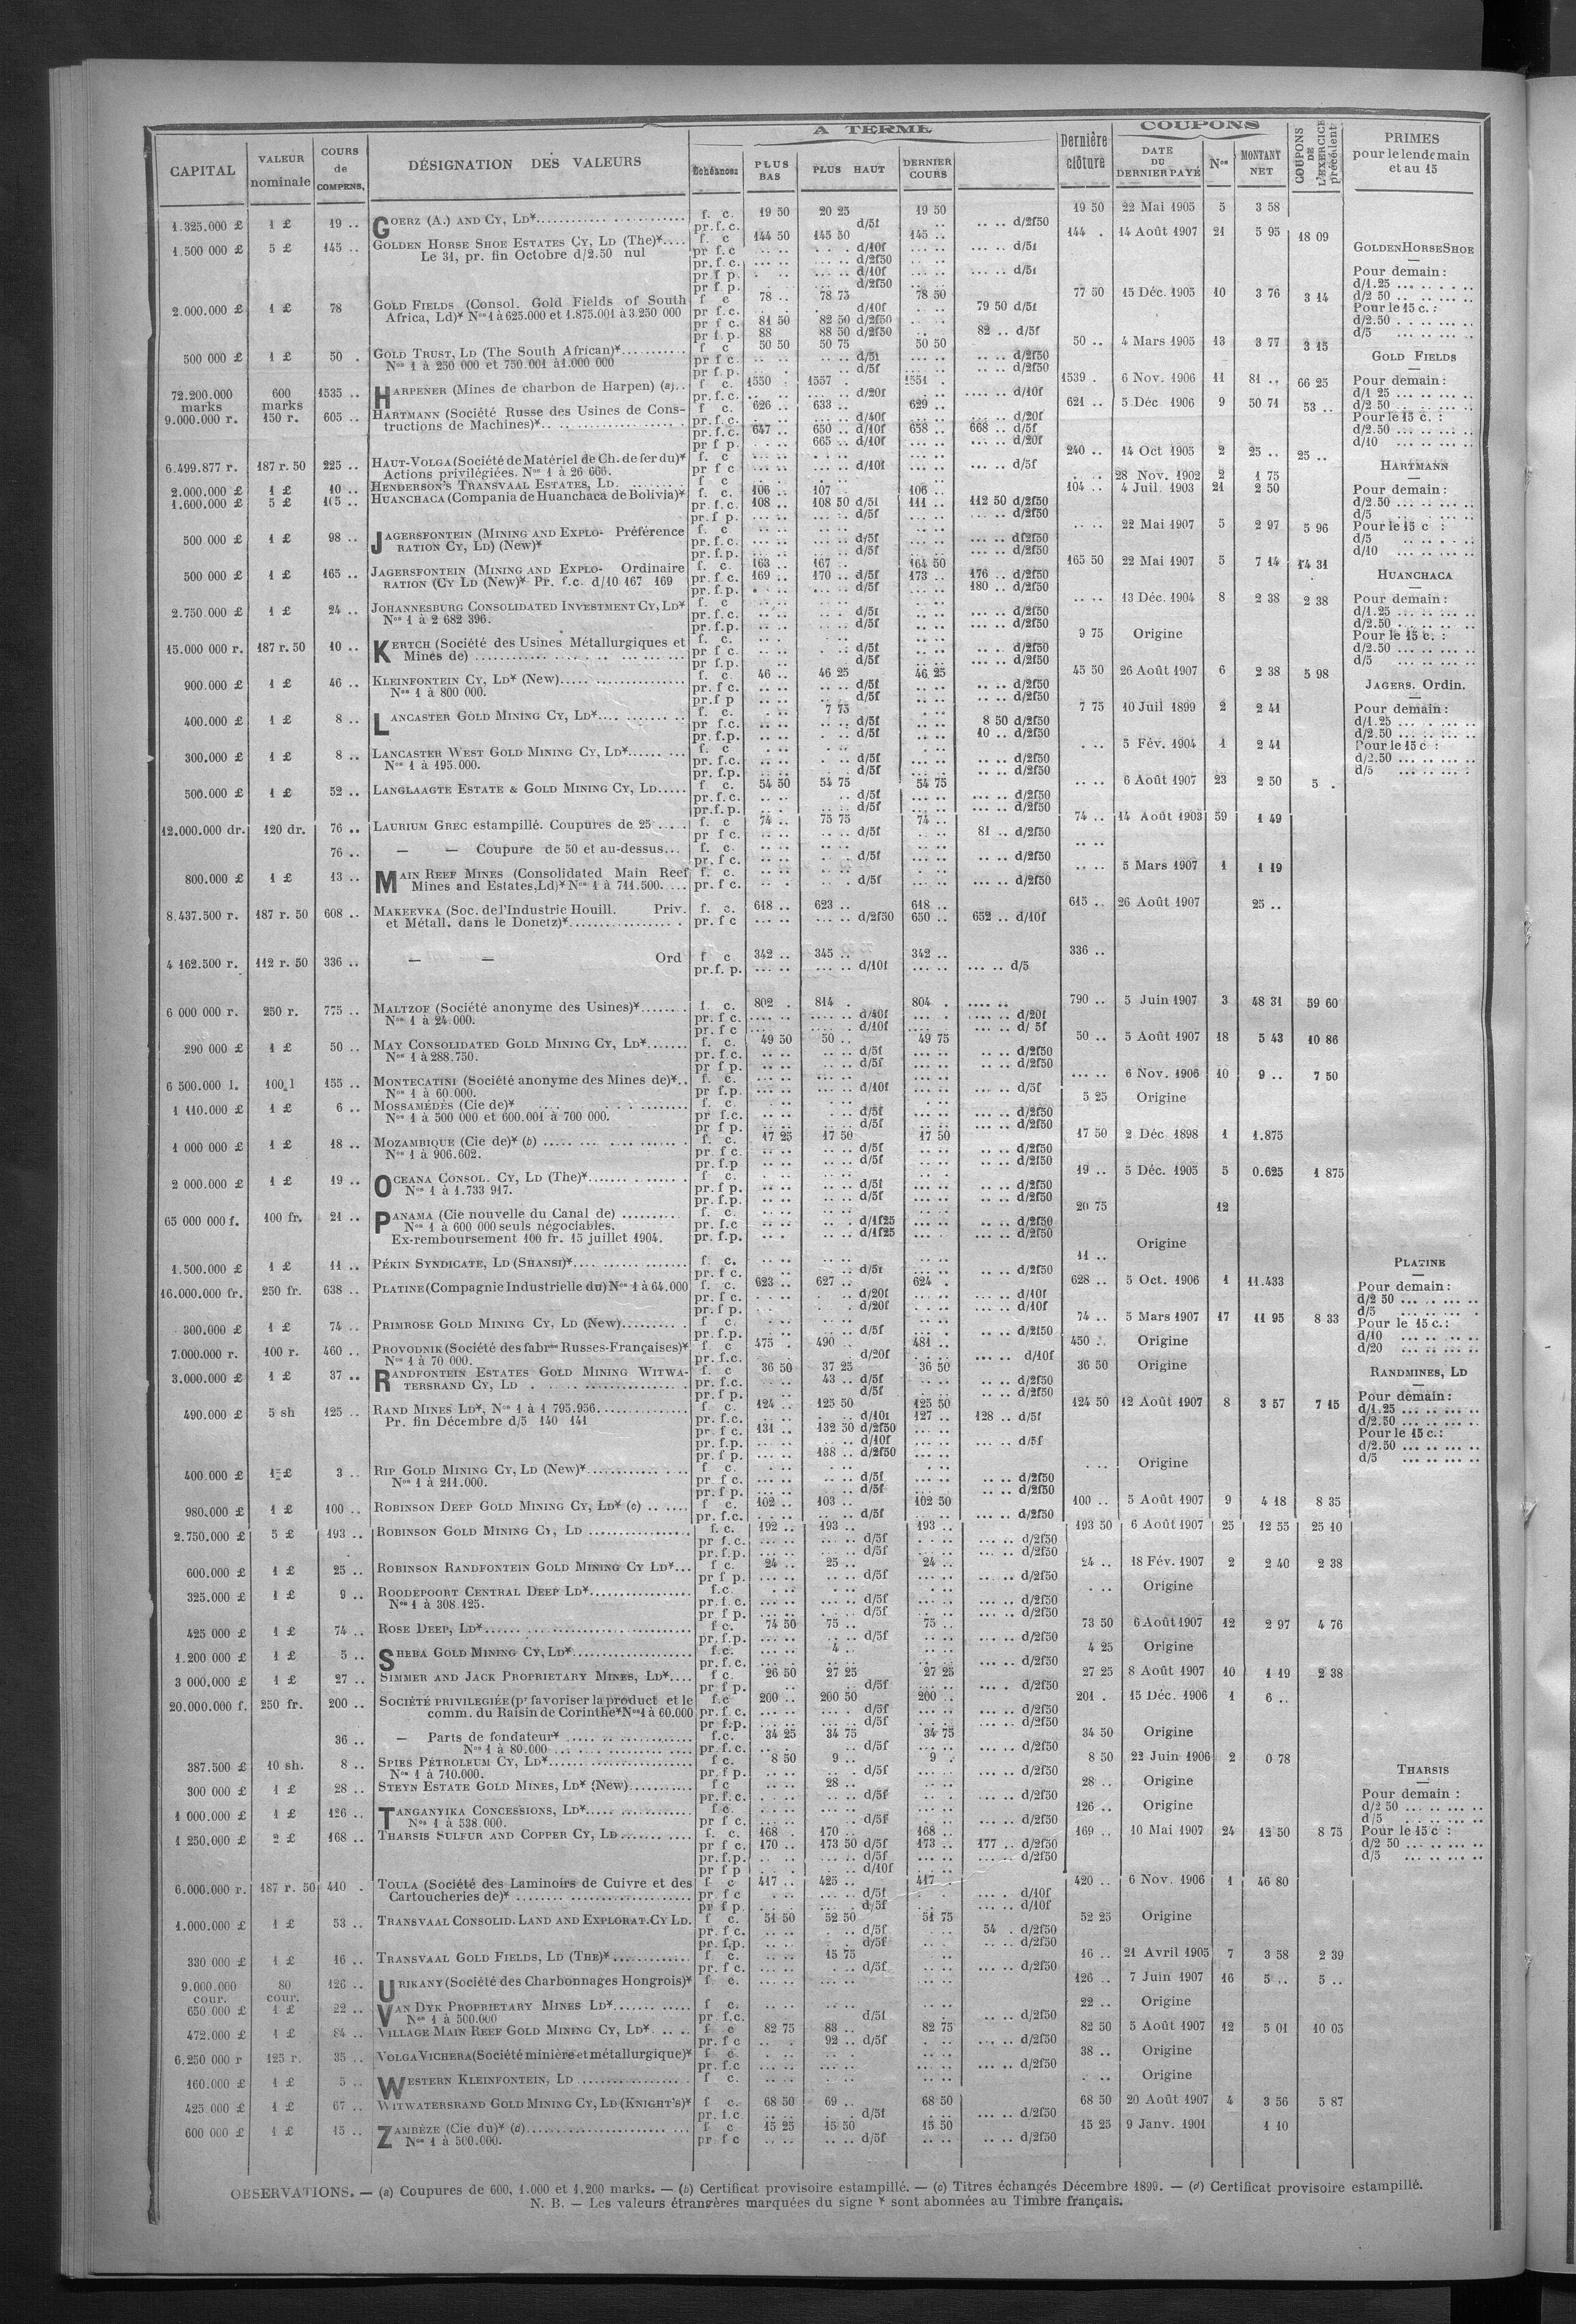 CAPITAL | VALEUR nominale | COURS de COMPENS. | DÉSIGNATION DES VALEURS | A TERME | Dernière clôture | COUPONS | COUPONS DE L'EXERCICE précédent | PRIMES pour le lendemain et au 15
Échéances | PLUS BAS | PLUS HAUT | DERNIER COURS | DATE DU DERNIER PAYÉ | Nos | MONTANT NET
1.325.000 £ | 1 £ | 19 .. | GOERZ (A.) AND CY, LD* | f. c. | 19 50 | 20 25 | 19 50 | 19 50 | 22 Mai 1905 | 5 | 3 58
pr. f. c. | d/5f | .. .. d/2f50
1.500 000 £ | 5 £ | 145 .. | GOLDEN HORSE SHOE ESTATES CY, LD (The)* | f. c | 144 50 | 145 50 | 145 .. | 144 . | 14 Août 1907 | 21 | 5 95 | 18 09
Le 31, pr. fin Octobre d/2.50 nul | pr f. c | d/10f | d/5f
pr. f. c. | d/2f50
pr f p. | d/10f | d/5f
pr f. p. | d/2f50
2.000.000 £ | 1 £ | 78 | GOLD FIELDS (Consol. Gold Fields of South | f c | 78 .. | 78 75 | 78 50 | 77 50 | 15 Déc. 1905 | 10 | 3 76 | 3 14
Africa, Ld)* Nos 1 à 625.000 et 1.875.001 à 3.250 000 | pr f. c. | d/10f | 79 50 d/5f
pr f c. | 81 50 | 82 50 d/2f50
pr f. p. | 88 | 88 50 d/2f50 | 82 .. d/5f
500 000 £ | 1 £ | 50 . | GOLD TRUST, LD (The South African)* | f c | 50 50 | 50 75 | 50 50 | 50 .. | 4 Mars 1905 | 13 | 3 77 | 3 15
Nos 1 à 250 000 et 750.001 à 1.000 000 | pr f c. | d/5f | d/2f50
pr f. p. | d/5f | d/2f50
72.200.000 marks | 600 marks | 1535 .. | HARPENER (Mines de charbon de Harpen) (a) | f c. | 1550 . | 1557 . | 1551 . | 1539 . | 6 Nov. 1906 | 11 | 81 .. | 66 25
pr. f. c. | d/20f | d/10f
9.000.000 r. | 150 r. | 605 .. | HARTMANN (Société Russe des Usines de Cons- | f c. | 626 .. | 633 .. | 629 .. | 621 .. | 5 Déc 1906 | 9 | 50 71 | 53 ..
tructions de Machines)* | pr. f. c. | d/40f | d/20f
pr. f. c. | 647 .. | 650 .. d/10f | 658 .. | 668 .. d/5f
pr f p. | 665 .. d/10f | d/20f
6.499.877 r. | 187 r. 50 | 225 .. | HAUT-VOLGA (Société de Matériel de Ch. de fer du)* | f. c | 240 .. | 14 Oct 1905 | 2 | 25 .. | 25 ..
Actions privilégiées. Nos 1 à 26 666. | pr f c | d/10f | d/5f
2.000.000 £ | 1 £ | 10 .. | HENDERSON'S TRANSVAAL ESTATES, LD. | f c | 28 Nov. 1902 | 2 | 1 75
1.600.000 £ | 5 £ | 105 .. | HUANCHACA (Compania de Huanchaca de Bolivia)* | f. c. | 106 .. | 107 . | 106 .. | 104 .. | 4 Juil. 1903 | 21 | 2 50
pr. f. c. | 108 .. | 108 50 d/5f | 111 .. | 112 50 d/2f50
pr. f p. | d/5f | d/2f50
500 000 £ | 1 £ | 98 .. | JAGERSFONTEIN (MINING AND EXPLO- Préférence | f. c | 22 Mai 1907 | 5 | 2 97 | 5 96
RATION CY, LD) (New)* | pr. f. c. | d/5f | d/2f50
pr. f. p. | d/5f | d/2f50
500 000 £ | 1 £ | 165 .. | JAGERSFONTEIN (MINING AND EXPLO- Ordinaire | f. c. | 163 .. | 167 .. | 164 50 | 165 50 | 22 Mai 1907 | 5 | 7 14 | 14 31
RATION (CY LD (New)* Pr. f. c. d/10 167 169 | pr. f c. | 169 .. | 170 .. d/5f | 173 .. | 176 .. d/2f50
pr. f. p. | d/5f | 180 .. d/2f50
2.750.000 £ | 1 £ | 24 .. | JOHANNESBURG CONSOLIDATED INVESTMENT CY, LD* | f. c | 13 Déc. 1904 | 8 | 2 38 | 2 38
Nos 1 à 2 682 396. | pr. f. c. | d/5f | d/2f50
pr. f. p. | d/5f | d/2f50
15.000 000 r. | 187 r. 50 | 10 .. | KERTCH (Société des Usines Métallurgiques et | f. c. | 9 75 | Origine
Mines de) | pr f c. | d/5f | d/2f50
pr f. p. | d/5f | d/2f50
900.000 £ | 1 £ | 46 .. | KLEINFONTEIN CY, LD* (New) | f. c. | 46 .. | 46 25 | 46 25 | 45 50 | 26 Août 1907 | 6 | 2 38 | 5 98
Nos 1 à 800 000. | pr. f c. | d/5f | d/2f50
pr. f p | d/5f | d/2f50
400.000 £ | 1 £ | 8 .. | LANCASTER GOLD MINING CY, LD* | f. c. | 7 75 | 7 75 | 10 Juil 1899 | 2 | 2 41
pr f. c. | d/5f | 8 50 d/2f50
pr. f. p. | d/5f | 10 .. d/2f50
300.000 £ | 1 £ | 8 .. | LANCASTER WEST GOLD MINING CY, LD* | f. c | 5 Fév. 1904 | 1 | 2 41
Nos 1 à 195.000. | pr. f. c. | d/5f | d/2f50
pr. f. p. | d/5f | d/2f50
500.000 £ | 1 £ | 52 .. | LANGLAAGTE ESTATE & GOLD MINING CY, LD | f c. | 54 50 | 54 75 | 54 75 | 6 Août 1907 | 23 | 2 50 | 5 .
pr. f. c. | d/5f | d/2f50
pr. f. p. | d/5f | d/2f50
12.000.000 dr. | 120 dr. | 76 .. | LAURIUM GREC estampillé. Coupures de 25 | f. c | 74 .. | 75 75 | 74 .. | 74 .. | 14 Août 1903 | 59 | 1 49
pr f c. | d/5f | 81 .. d/2f50
76 .. | — — Coupure de 50 et au-dessus | f. c.
pr. f c. | d/5f | d/2f50
800.000 £ | 1 £ | 13 .. | MAIN REEF MINES (Consolidated Main Reef | f. c. | 5 Mars 1907 | 1 | 1 19
Mines and Estates, Ld)* Nos 1 à 711.500. | pr. f c. | d/5f | d/2f50
8.437.500 r. | 187 r. 50 | 608 .. | MAKEEVKA (Soc. de l'Industrie Houill. Priv. | f. c. | 618 .. | 623 .. | 618 .. | 615 .. | 26 Août 1907 | 25 ..
et Métall. dans le Donetz)* | pr. f c | d/2f50 | 650 .. | 652 .. d/10f
4 162.500 r. | 112 r. 50 | 336 .. | — — Ord | f c | 342 .. | 345 .. | 342 .. | 336 ..
pr. f. p. | d/10f | d/5
6 000 000 r. | 250 r. | 775 .. | MALTZOF (Société anonyme des Usines)* | f. c. | 802 . | 814 . | 804 . | 790 .. | 5 Juin 1907 | 3 | 48 31 | 59 60
Nos 1 à 24.000. | pr. f c. | d/40f | d/20f
pr. f c | d/10f | d/ 5f
290 000 £ | 1 £ | 50 .. | MAY CONSOLIDATED GOLD MINING CY, LD* | f. c. | 49 50 | 50 .. | 49 75 | 50 .. | 5 Août 1907 | 18 | 5 43 | 10 86
Nos 1 à 288.750. | pr. f. c. | d/5f | d/2f50
pr f p. | d/5f | d/2f50
6 500.000 l. | 100 l | 155 .. | MONTECATINI (Société anonyme des Mines de)* | f. c. | 6 Nov. 1906 | 10 | 9 .. | 7 50
Nos 1 à 60.000. | pr f. p. | d/10f | d/5f
1 110.000 £ | 1 £ | 6 .. | MOSSAMÉDÈS (Cie de)* | f. c. | 5 25 | Origine
Nos 1 à 500 000 et 600.001 à 700 000. | pr f. c. | d/5f | d/2f50
pr f p. | d/5f | d/2f50
1 000 000 £ | 1 £ | 18 .. | MOZAMBIQUE (Cie de)* (b) | f. c. | 17 25 | 17 50 | 17 50 | 17 50 | 2 Déc 1898 | 1 | 1.875
Nos 1 à 906.602. | pr. f c. | d/5f | d/2f50
pr. f. p | d/5f | d/2f50
2 000.000 £ | 1 £ | 19 .. | OCEANA CONSOL. CY, LD (The)* | f c. | 19 .. | 5 Déc. 1905 | 5 | 0.625 | 1 875
Nos 1 à 1.733 917. | pr. f p. | d/5f | d/2f50
pr. f. p. | d/5f | d/2f50
65 000 000 f. | 100 fr. | 21 .. | PANAMA (Cie nouvelle du Canal de) | f. c. | 20 75 | 12
Nos 1 à 600 000 seuls négociables. | pr. f. c | d/1f25 | d/2f50
Ex-remboursement 100 fr. 15 juillet 1904. | pr. f. p. | d/1f25 | d/2f50
1.500.000 £ | 1 £ | 11 .. | PÉKIN SYNDICATE, LD (SHANSI)* | f. c. | 11 .. | Origine
pr. f c. | d/5f | d/2f50
16.000.000 fr. | 250 fr. | 638 .. | PLATINE (Compagnie Industrielle du) Nos 1 à 64.000 | f. c. | 623 .. | 627 .. | 624 . | 628 .. | 5 Oct. 1906 | 1 | 11.433
pr. f c. | d/20f | d/10f
pr. f p. | d/20f | d/10f
300.000 £ | 1 £ | 74 .. | PRIMROSE GOLD MINING CY, LD (New) | f c. | 74 .. | 5 Mars 1907 | 17 | 11 95 | 8 33
pr. f. p. | d/5f | d/2f50
7.000.000 r. | 100 r. | 460 .. | PROVODNIK (Société des fabres Russes-Françaises)* | f. c | 475 . | 490 .. | 481 .. | 450 .. | Origine
Nos 1 à 70 000. | pr. f. c. | d/20f | d/10f
3.000.000 £ | 1 £ | 37 .. | RANDFONTEIN ESTATES GOLD MINING WITWA- | f. c | 36 50 | 37 25 | 36 50 | 36 50 | Origine
TERSRAND CY, LD | pr. f. c. | 43 .. d/5f | d/2f50
pr. f p. | d/5f | d/2f50
490.000 £ | 5 sh | 125 .. | RAND MINES LD*, Nos 1 à 1 795.956 | f. c. | 124 .. | 125 50 | 125 50 | 124 50 | 12 Août 1907 | 8 | 3 57 | 7 15
Pr. fin Décembre d/5 140 141 | pr. f. c. | d/10f | 127 .. | 128 .. d/5f
pr. f c. | 131 .. | 132 50 d/2f50
pr. f. p. | d/10f | d/5f
pr. f p. | 138 .. d/2f50
400.000 £ | 1 £ | 3 .. | RIP GOLD MINING CY, LD (New)* | f c. | Origine
Nos 1 à 211.000. | pr. f c. | d/5f | d/2f50
pr. f p. | d/5f | d/2f50
980.000 £ | 1 £ | 100 .. | ROBINSON DEEP GOLD MINING CY, LD* (c) | f c. | 102 .. | 103 .. | 102 50 | 100 .. | 5 Août 1907 | 9 | 4 18 | 8 35
pr. f. c. | d/5f | d/2f50
2.750.000 £ | 5 £ | 193 .. | ROBINSON GOLD MINING CY, LD | f. c. | 192 .. | 193 .. | 193 .. | 193 50 | 6 Août 1907 | 25 | 12 55 | 25 10
pr f. c. | d/5f | d/2f50
pr. f. p. | d/5f | d/2f50
600.000 £ | 1 £ | 25 .. | ROBINSON RANDFONTEIN GOLD MINING CY LD* | f c. | 24 .. | 25 .. | 24 .. | 24 .. | 18 Fév. 1907 | 2 | 2 40 | 2 38
pr f p. | d/5f | d/2f50
325.000 £ | 1 £ | 9 .. | ROODEPOORT CENTRAL DEEP LD* | f. c. | Origine
Nos 1 à 308.125. | pr. f. c. | d/5f | d/2f50
pr f p. | d/5f | d/2f50
425 000 £ | 1 £ | 74 .. | ROSE DEEP, LD* | f c. | 74 50 | 75 .. | 75 .. | 73 50 | 6 Août 1907 | 12 | 2 97 | 4 76
pr. f. p. | d/5f | d/2f50
1.200 000 £ | 1 £ | 5 .. | SHEBA GOLD MINING CY, LD* | f. c. | 4 .. | 4 25 | Origine
pr. f. c. | d/2f50
3 000.000 £ | 1 £ | 27 .. | SIMMER AND JACK PROPRIETARY MINES, LD* | f c. | 26 50 | 27 25 | 27 25 | 27 25 | 8 Août 1907 | 10 | 1 19 | 2 38
pr f p. | d/5f | d/2f50
20.000.000 f. | 250 fr. | 200 .. | SOCIÉTÉ PRIVILEGIÉE (pr favoriser la product et le | f. c | 200 .. | 200 50 | 200 .. | 201 . | 15 Déc. 1906 | 1 | 6 ..
comm. du Raisin de Corinthe* Nos 1 à 60.000 | pr. f. c. | d/5f | d/2f50
pr f. p. | d/5f | d/2f50
36 .. | — Parts de fondateur* | f. c. | 34 25 | 34 75 | 34 75 | 34 50 | Origine
Nos 1 à 80.000 | pr. f. c. | d/5f | d/2f50
387.500 £ | 10 sh. | 8 .. | SPIES PÉTROLEUM CY, LD* | f c. | 8 50 | 9 .. | 9 . | 8 50 | 22 Juin 1906 | 2 | 0 78
Nos 1 à 710.000. | pr. f p. | d/5f | d/2f50
300 000 £ | 1 £ | 28 .. | STEYN ESTATE GOLD MINES, LD* (New) | f c | 28 .. | 28 .. | Origine
pr. f. c. | d/5f | d/2f50
1 000.000 £ | 1 £ | 126 .. | TANGANYIKA CONCESSIONS, LD* | f c. | 126 .. | Origine
Nos 1 à 538.000. | pr f c. | d/5f | d/2f50
1 250.000 £ | 2 £ | 168 .. | THARSIS SULFUR AND COPPER CY, LD | f. c. | 168 . | 170 .. | 168 .. | 169 .. | 10 Mai 1907 | 24 | 12 50 | 8 75
pr f c. | 170 .. | 173 50 d/5f | 173 .. | 177 .. d/2f50
pr. f. p. | d/5f | d/2f50
pr f p | d/10f
6.000.000 r. | 187 r. 50 | 410 . | TOULA (Société des Laminoirs de Cuivre et des | f c | 417 .. | 425 .. | 417 | 420 .. | 6 Nov. 1906 | 1 | 46 80
Cartoucheries de)* | pr. f c | d/5f | d/10f
pr f p. | d/5f | d/10f
1.000.000 £ | 1 £ | 53 .. | TRANSVAAL CONSOLID. LAND AND EXPLORAT. CY LD. | f c. | 51 50 | 52 50 | 51 75 | 52 25 | Origine
pr. f c. | d/5f | 54 . d/2f50
pr. f. p. | d/5f | d/2f50
330 000 £ | 1 £ | 16 .. | TRANSVAAL GOLD FIELDS, LD (THE)* | f c. | 15 75 | 16 .. | 21 Avril 1905 | 7 | 3 58 | 2 39
pr. f c. | d/5f | d/2f50
9.000.000 cour. | 80 cour. | 126 .. | URIKANY (Société des Charbonnages Hongrois)* | f c. | 126 .. | 7 Juin 1907 | 16 | 5 .. | 5 ..
650 000 £ | 1 £ | 22 .. | VAN DYK PROPRIETARY MINES LD* | f c. | 22 .. | Origine
Nos 1 à 500.000 | pr f. c. | d/5f | d/2f50
472.000 £ | 1 £ | 84 .. | VILLAGE MAIN REEF GOLD MINING CY, LD* | f c | 82 75 | 83 .. | 82 75 | 82 50 | 5 Août 1907 | 12 | 5 01 | 10 05
pr. f c | 92 .. d/5f | d/2f50
6.250 000 r | 125 r. | 35 .. | VOLGA VICHERA (Société minière et métallurgique)* | f c. | 38 .. | Origine
pr. f. c | d/2f50
160.000 £ | 1 £ | 5 .. | WESTERN KLEINFONTEIN, LD | f c. | Origine
425 000 £ | 1 £ | 67 .. | WITWATERSRAND GOLD MINING CY, LD (KNIGHT'S)* | f c. | 68 50 | 69 .. | 68 50 | 68 50 | 20 Août 1907 | 4 | 3 56 | 5 87
pr. f. c | d/5f | d/2f50
600 000 £ | 1 £ | 15 .. | ZAMBÈZE (Cie du)* (d) | f c | 15 25 | 15 50 | 15 50 | 15 25 | 9 Janv. 1901 | 1 10
Nos 1 à 500.000. | pr f c | d/5f | d/2f50
GOLDEN HORSE SHOE
Pour demain :
d/1.25
d/2 50
Pour le 15 c. :
d/2.50
d/5
GOLD FIELDS
Pour demain :
d/1 25
d/2 50
Pour le 15 c. :
d/2.50
d/10
HARTMANN
Pour demain :
d/2.50
d/5
Pour le 15 c :
d/5
d/10
HUANCHACA
Pour demain :
d/1.25
d/2.50
Pour le 15 c. :
d/2.50
d/5
JAGERS. Ordin.
Pour demain :
d/1.25
d/2.50
Pour le 15 c :
d/2.50
d/5
PLATINE
Pour demain :
d/2 50
d/5
Pour le 15 c. :
d/10
d/20
RANDMINES, LD
Pour demain :
d/1.25
d/2.50
Pour le 15 c. :
d/2.50
d/5
THARSIS
Pour demain :
d/2 50
d/5
Pour le 15 c :
d/2 50
d/5
OBSERVATIONS. — (a) Coupures de 600, 1.000 et 1.200 marks. — (b) Certificat provisoire estampillé. — (c) Titres échangés Décembre 1899. — (d) Certificat provisoire estampillé.
N. B. — Les valeurs étrangères marquées du signe * sont abonnées au Timbre français.